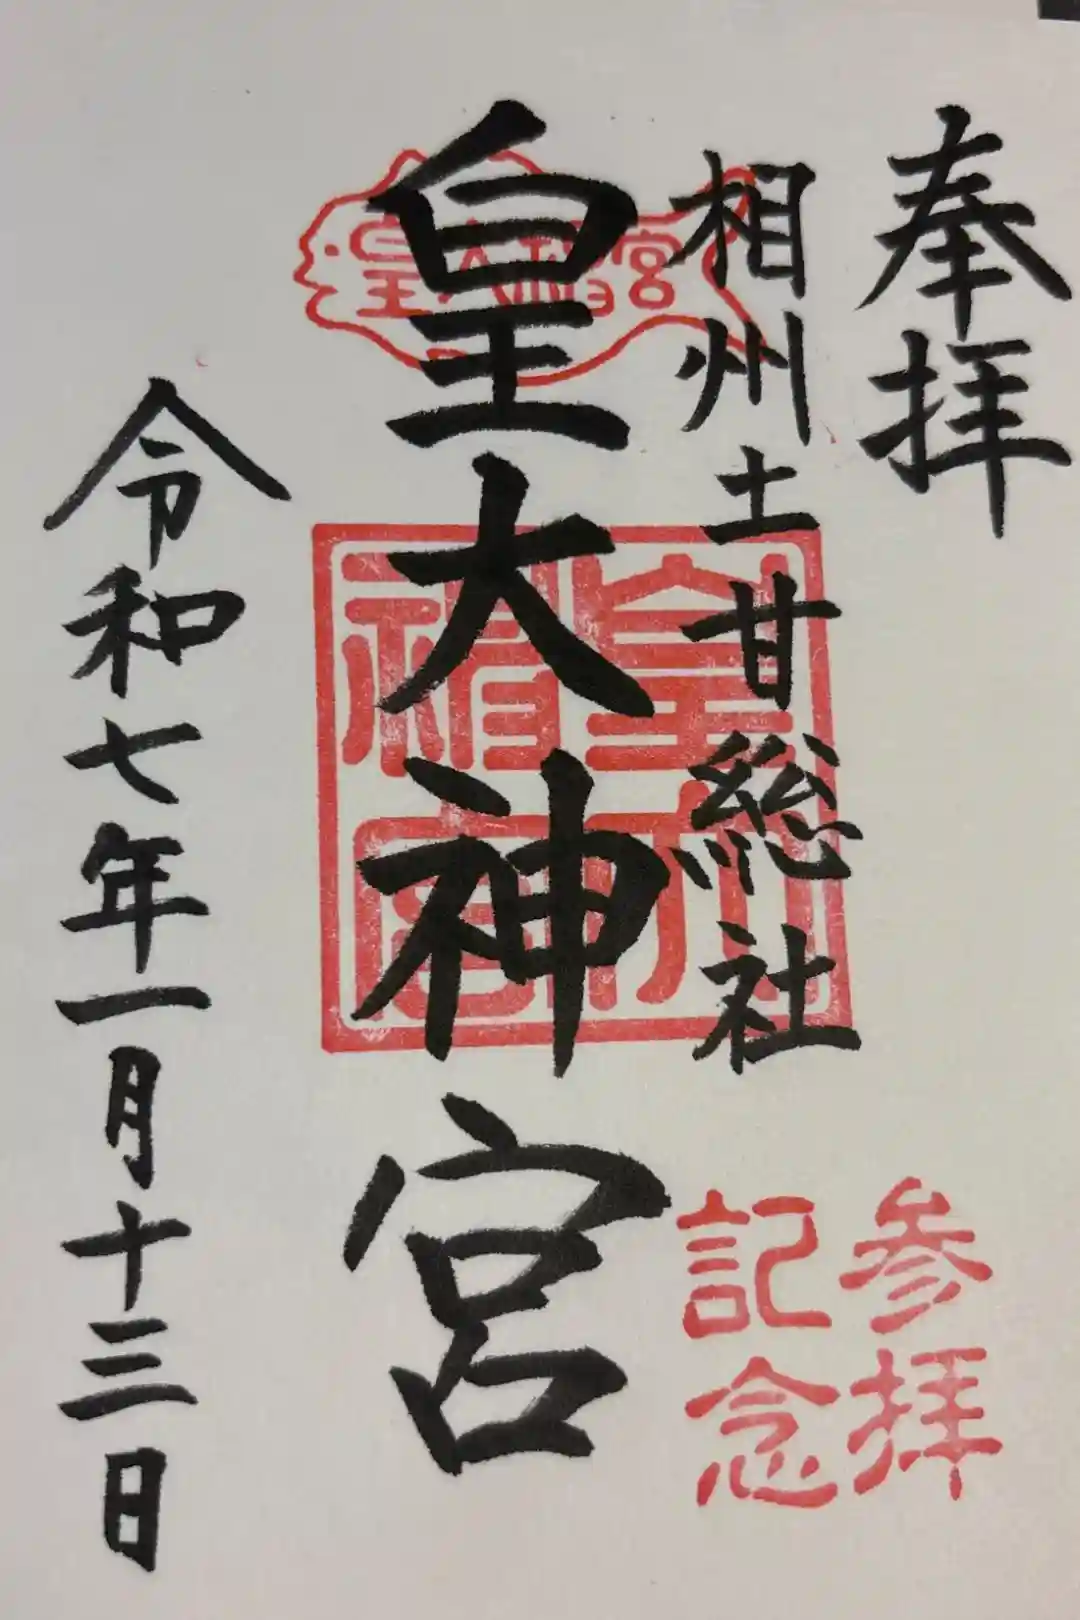 奉拝
相州土甘総社
皇大神宮
令和七年一月十三日
皇大神宮
皇大神宮
参拝
記念